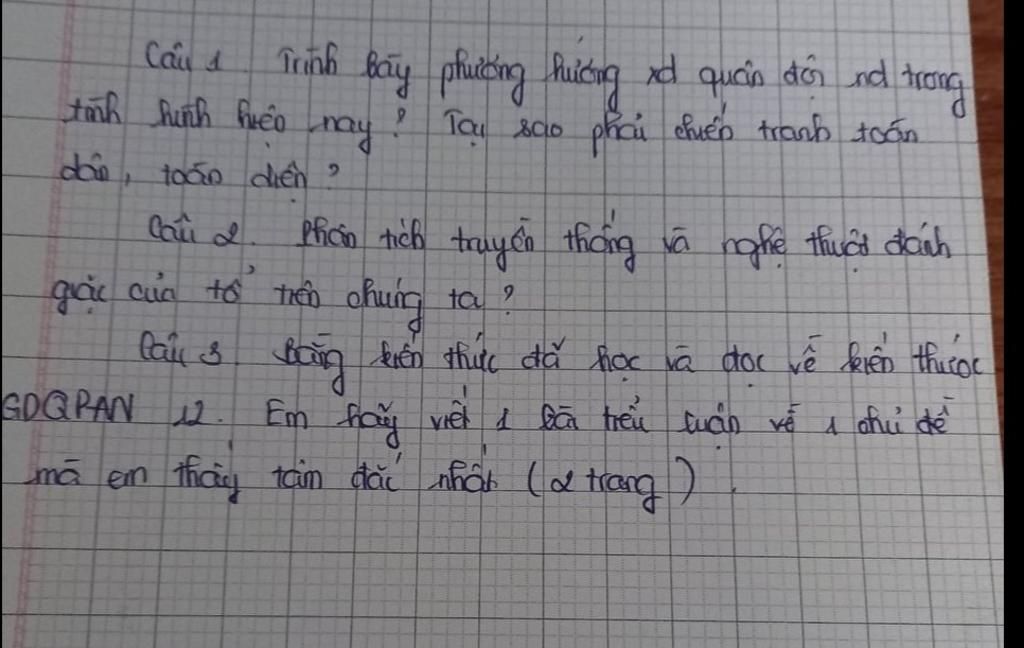 Câu 1 Trình bày phương hướng xd quân đội nd trong
tình hình hiện nay? Tại sao phải chiến tranh toàn
dân, toàn diện?
Câu 2. Phân tích truyền thống và nghệ thuật đánh
giặc của tổ tiên chúng ta?
Câu 3 Bằng kiến thức đã học và đọc về kiến thức
GDQPAN 12. Em hãy viết 1 bài tiểu luận về 1 chủ đề
mà em thấy tâm đắc nhất (2 trang).